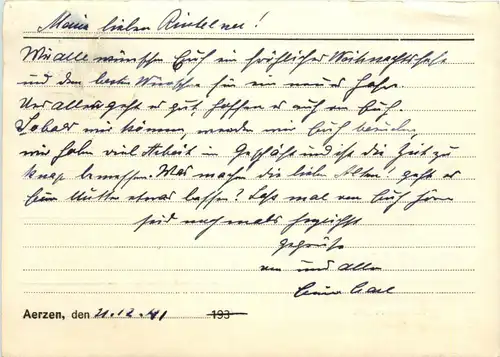 Meine lieben Rintelner!
Wir alle wünschen Euch ein fröhliches Weihnachtsfest
und den besten Wünschen für ein neues Jahr.
Uns allen geht es gut, hoffen es auch von Euch.
Sobald wir können, werden wir Euch besuchen,
wir haben viel Arbeit im Geschäft und ist die Zeit zu
knap bemessen. Was machen die lieben Alten, geht es
Eurer Mutter etwas besser? Laßt mal von Euch hören
seid nochmals herzlichst
gegrüßt
von uns allen
Euer Carl
Aerzen, den 21.12.41 193